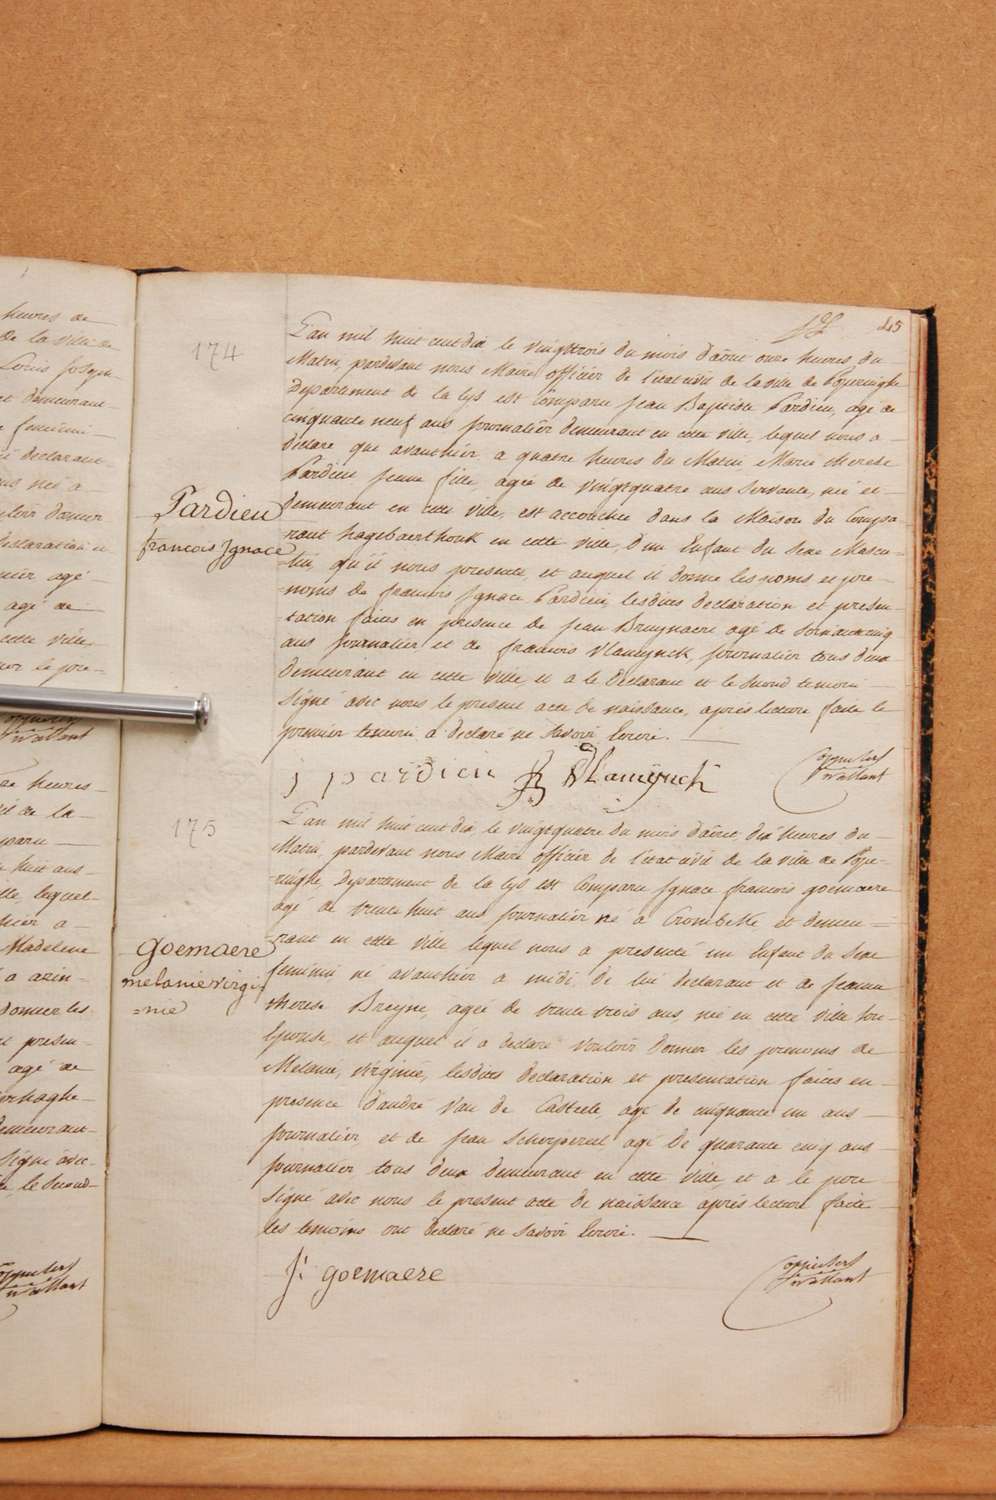 heures de
de la ville de
Louis Joseph
et demeurant
feminin
declarant
né a
vouloir donner
declaration et
agé
agé de
cette ville,
le pre-
45
174
L'an mil huit cent dix le vingttrois du mois d'aôut onze heures du
Matin, pardevant nous Maire officier de l'etat civil de la ville de Poperinghe
Departement de la Lys est Comparu Jean Baptiste Pardieu, agé de
cinquante neuf ans Journalier demeurant en cette ville, lequel nous a
declaré que avanthier a quatre heures du Matin Marie therese
Pardieu jeune fille agée de vingtquatre ans Servante, née et
demeurant en cette ville, est accouchée dans la Maison du Compa-
rant hagebaerthouk en cette ville, d'un Enfant du Sexe Mascu-
-lin, qu'il nous presente, et auquel il donne les noms et pre-
-noms de francois Ignace Pardieu, lesdites declaration et presen-
-tation faites en presence de Jean Bruynaere agé de
ans Journalier et de francois Vlamynck, Journalier tous deux
demeurant en cette ville, et a le Declarant et le Second temoin
Signé avec nous le present acte de naissance, après lecture faite le
premier temoin a declaré ne Savoir Ecrire.
Pardieu
francois Ignace
j pardieu f Vlamÿnck
175
L'an mil huit cent dix, le vingtquatre du mois d'aôut dix heures du
Matin, pardevant nous Maire officier de l'etat civil de la ville de Pope-
-ringhe, Departement de la Lys est Comparu Ignace francois goemaere
agé de trente huit ans Journalier né a Crombeke et demeu-
-rant en cette ville lequel nous a presenté un Enfant du Sexe
feminin né avanthier a midi, de lui declarant et de Jeanne
therese Breyne, agée de trente trois ans, née en cette ville Son
Epouse, et auquel il a declaré vouloir donner les prenoms de
Melanie, virginie, lesdites declaration et presentation faites en
presence d'andré Van de Casteele agé de cinquante un ans
Journalier et de Jean Scherpereel agé de quarante cinq ans
Journalier, tous deux demeurant en cette ville et a le pere
Signé avec nous le present acte de naissance après lecture faite
les temoins ont declaré ne Savoir Ecrire.
goemaere
melanie virgi
=nie
J: goemaere